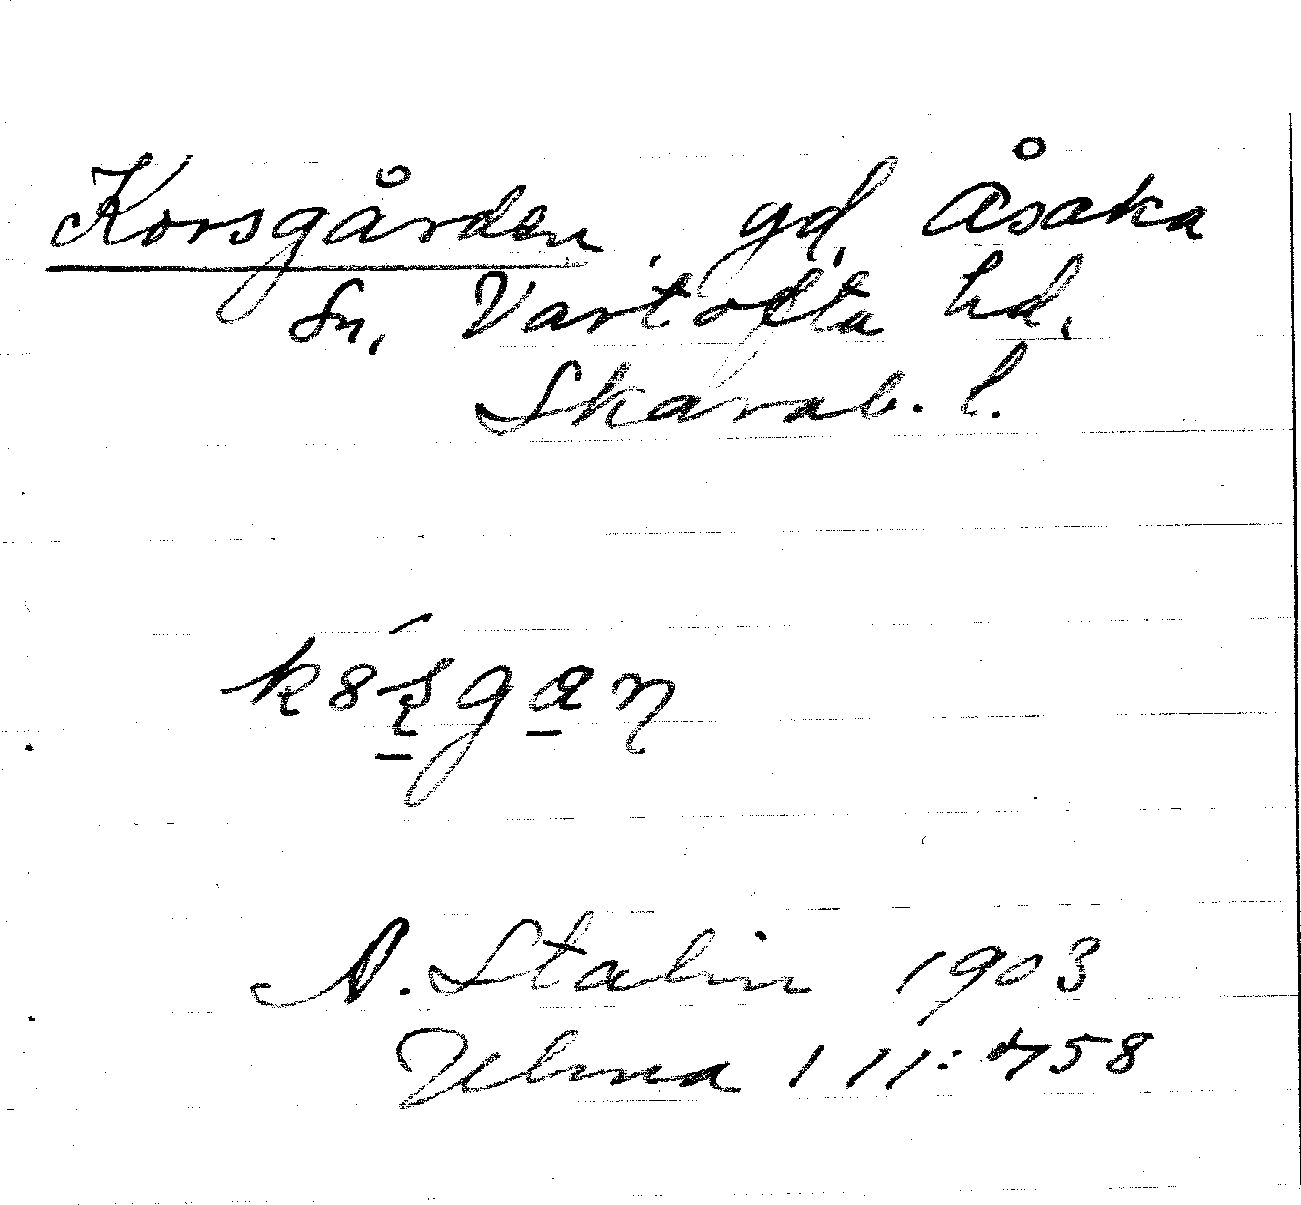 Korsgården, gd, Åsaka
sn, Vartofta hd,
Skarab. l.
A. Stalin 1903
Ulma 111:758